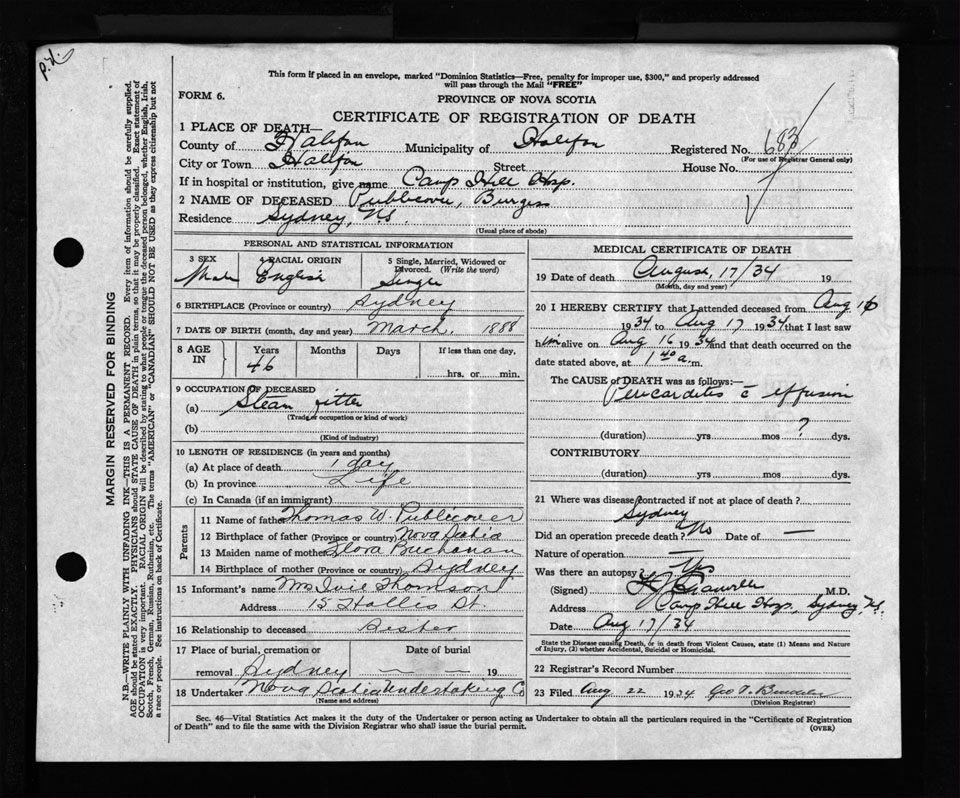 p.x.
This form if placed in an envelope, marked "Dominion Statistics—Free, penalty for improper use, $300," and properly addressed
will pass through the Mail "FREE"
FORM 6.
PROVINCE OF NOVA SCOTIA
CERTIFICATE OF REGISTRATION OF DEATH
1 PLACE OF DEATH—
County of Halifax Municipality of Halifax Registered No. 683
(For use of Registrar General only)
City or Town Halifax Street House No.
If in hospital or institution, give name Camp Hill Hosp.
2 NAME OF DECEASED Publicover, Burgess
Residence Sydney, N.S.
(Usual place of abode)
PERSONAL AND STATISTICAL INFORMATION
3 SEX 4 RACIAL ORIGIN 5 Single, Married, Widowed or Divorced. (Write the word)
Male English Single
6 BIRTHPLACE (Province or country) Sydney
7 DATE OF BIRTH (month, day and year) March, 1888
8 AGE IN Years Months Days If less than one day,
46 hrs. or min.
9 OCCUPATION OF DECEASED
(a) Steam fitter
(Trade or occupation or kind of work)
(b)
(Kind of industry)
10 LENGTH OF RESIDENCE (in years and months)
(a) At place of death 1 day
(b) In province Life
(c) In Canada (if an immigrant)
Parents
11 Name of father Thomas W. Publicover
12 Birthplace of father (Province or country) Nova Scotia
13 Maiden name of mother Flora Buchanan
14 Birthplace of mother (Province or country) Sydney
15 Informant's name Mrs Ivie Thomson
Address 15 Hollis St.
16 Relationship to deceased Sister
17 Place of burial, cremation or removal Sydney Date of burial — — 19
18 Undertaker Nova Scotia Undertaking Co
(Name and address)
MEDICAL CERTIFICATE OF DEATH
19 Date of death August, 17/34 19
(Month, day and year)
20 I HEREBY CERTIFY that I attended deceased from Aug 16
1934 to Aug 17 1934 that I last saw
him alive on Aug 16 1934 and that death occurred on the
date stated above, at 1 40 a. m.
The CAUSE of DEATH was as follows:—
Pericarditis c̄ effusion
(duration) yrs mos ? dys.
CONTRIBUTORY
(duration) yrs mos dys.
21 Where was disease contracted if not at place of death?
Sydney
Did an operation precede death? No Date of —
Nature of operation —
Was there an autopsy? Yes
(Signed) M.D.
Address Camp Hill Hosp, Sydney N.S.
Date Aug 17/34
State the Disease causing Death, or in death from Violent Causes, state (1) Means and Nature
of Injury, (2) whether Accidental, Suicidal or Homicidal.
22 Registrar's Record Number
23 Filed Aug 22 1934 Geo T.
(Division Registrar)
Sec. 46—Vital Statistics Act makes it the duty of the Undertaker or person acting as Undertaker to obtain all the particulars required in the "Certificate of Registration
of Death" and to file the same with the Division Registrar who shall issue the burial permit.
(OVER)
MARGIN RESERVED FOR BINDING
N.B.—WRITE PLAINLY WITH UNFADING INK—THIS IS A PERMANENT RECORD. Every item of information should be carefully supplied.
AGE should be stated EXACTLY. PHYSICIANS should STATE CAUSE OF DEATH in plain terms, so that it may be properly classified. Exact statement of
OCCUPATION is very important. RACIAL ORIGIN will be described by stating to what people or tongue the deceased person belonged, whether English, Irish,
Scotch, French, German, Russian, Ruthenian, etc. The terms "AMERICAN" or "CANADIAN" SHOULD NOT BE USED as they express citizenship but not
a race or people. See instructions on back of Certificate.